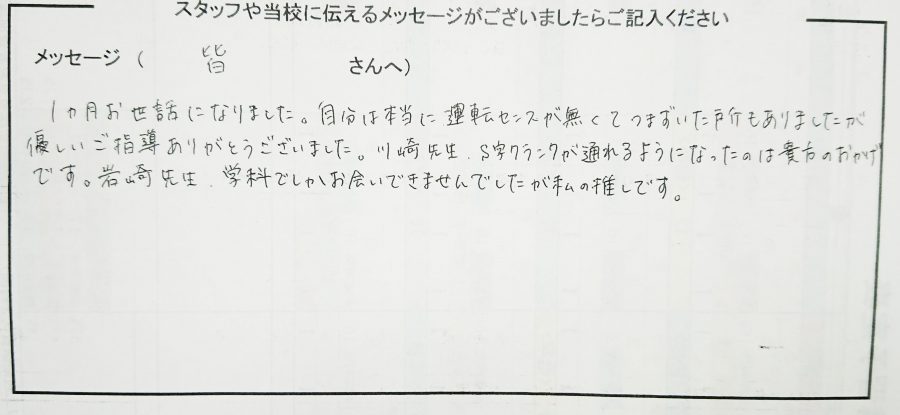 スタッフや当校に伝えるメッセージがございましたらご記入ください
メッセージ ( 皆 さんへ)
1カ月お世話になりました。自分は本当に運転センスが無くてつまずいた所もありましたが
優しいご指導ありがとうございました。川崎先生、S字クランクが通れるようになったのは貴方のおかげ
です。岩崎先生、学科でしかお会いできませんでしたが私の推しです。